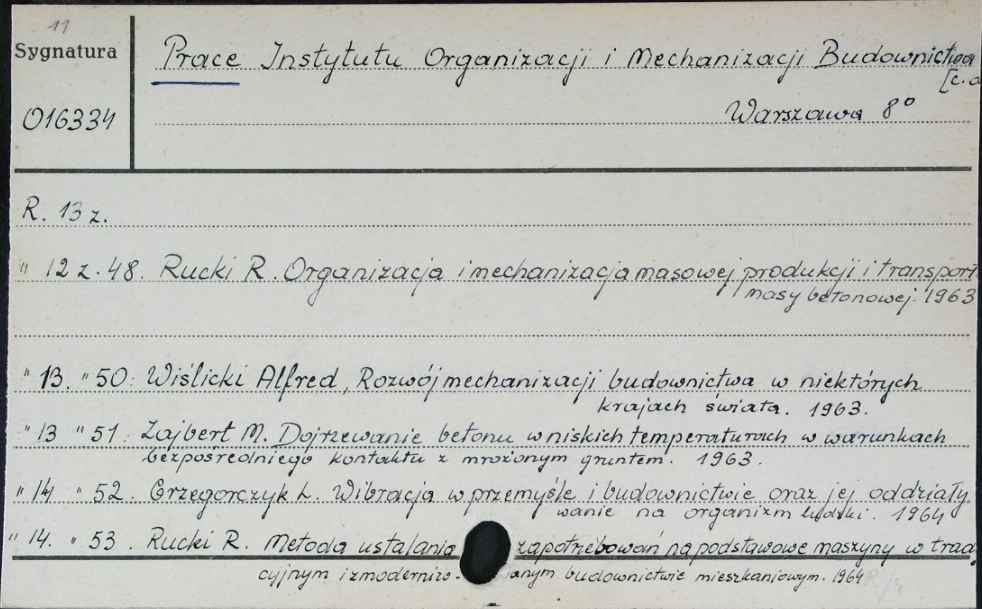 11
Sygnatura
Prace Instytutu Organizacji i Mechanizacji Budownictwa
[c.d
016334
Warszawa 8°
R. 13 z.
" 12 z. 48. Rucki R. Organizacja i mechanizacja masowej produkcji i transport
masy betonowej. 1963
" 13. " 50: Wiślicki Alfred, Rozwój mechanizacji budownictwa w niektórych
krajach świata. 1963.
" 13 " 51: Zajbert M. Dojrzewanie betonu w niskich temperaturach w warunkach
bezpośredniego kontaktu z mrożonym gruntem. 1963.
" 14 " 52. Grzegorczyk L. Wibracja w przemyśle i budownictwie oraz jej oddziały
wanie na organizm ludzki. 1964
" 14. " 53. Rucki R. Metoda ustalania zapotrzebowań na podstawowe maszyny w trad
cyjnym i zmodernizo- wanym budownictwie mieszkaniowym. 1964